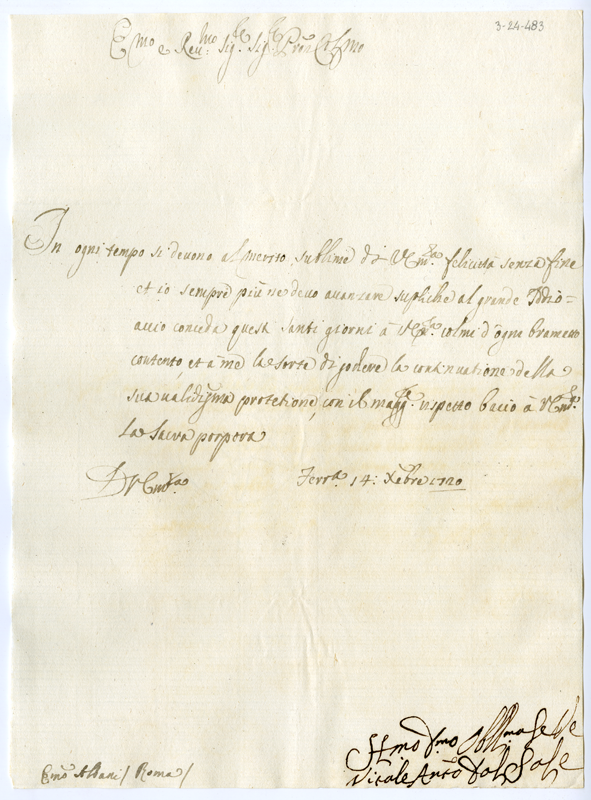 3-24-483
E.mo e Reu.mo Sig.re Sig.re Pron Col.mo
In ogni tempo si deuono al merito sublime di V. Em.za felicità senza fine
et io sempre più ne deuo auanzare supliche al grande Iddio =
acciò conceda questi santi giorni à V. Em.za colmi d'ogni bramato
contento, et à me la sorte di godere la continuatione della
sua ualidissima protetione, con il magg.re rispetto bacio à V. Em.za
la Sacra porpora
D V. Em.za
Ferr.a 14: Xebre 1720
Em.o Albani / Roma /
H.mo D.mo Obl.mo Se.re
Vitale Ant.o dal Sale